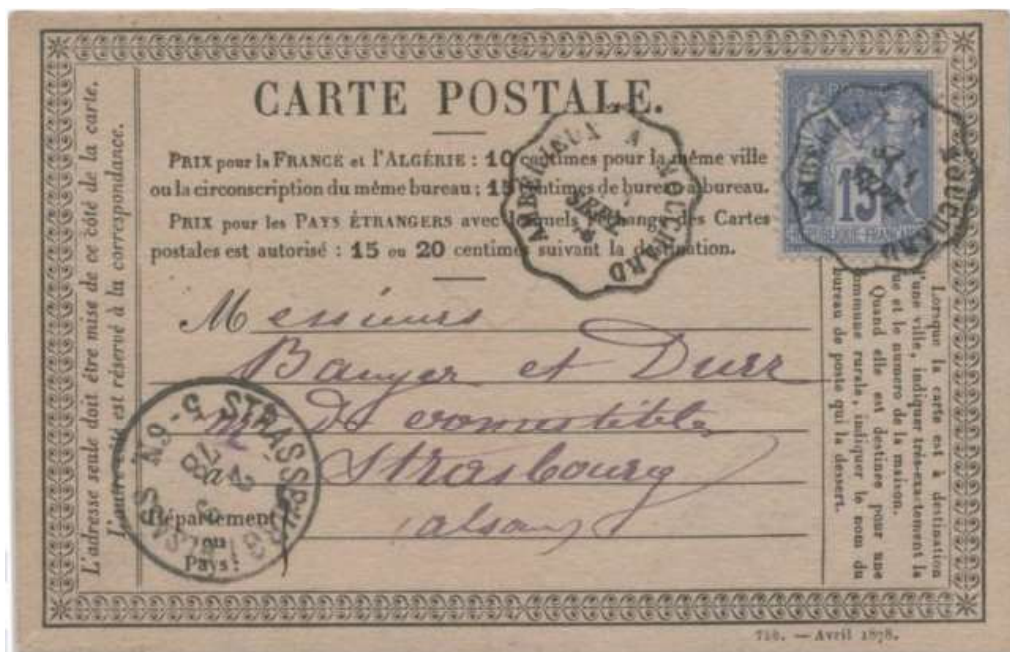 CARTE POSTALE.
PRIX pour la FRANCE et l'ALGÉRIE : 10 centimes pour la même ville
ou la circonscription du même bureau ; 15 centimes de bureau à bureau.
PRIX pour les PAYS ÉTRANGERS avec lesquels l'échange des Cartes
postales est autorisé : 15 ou 20 centimes suivant la destination.
Messieurs
et Durr
de comestibles
Strasbourg
Département
ou
Pays :
L'adresse seule doit être mise de ce côté de la carte.
L'autre côté est réservé à la correspondance.
Lorsque la carte est à destination
d'une ville, indiquer très-exactement la
rue et le numéro de la maison.
Quand elle est destinée pour une
commune rurale, indiquer le nom du
bureau de poste qui la dessert.
AMBERIEUX A MOUCHARD
SEPT
15
REPUBLIQUE FRANÇAISE
AMBERIEUX A MOUCHARD
SEPT
STRASSBURG I ELSASS
5-6N
78
750. — Avril 1878.